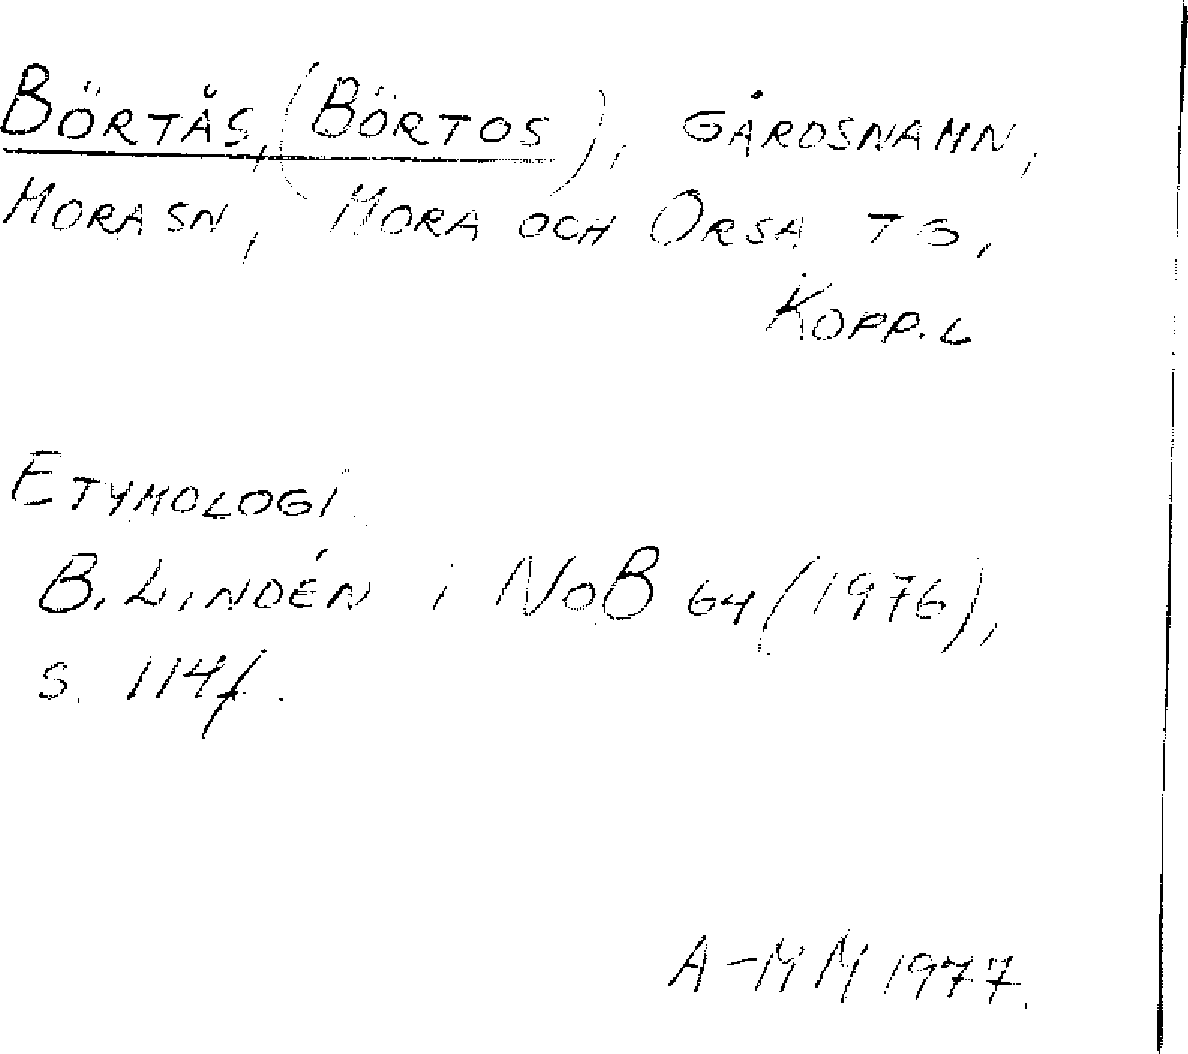 BÖRTÅS, (BÖRTOS), GÅRDSNAMN,
MORA SN, MORA OCH ORSA TG,
KOPP. L
ETYMOLOGI.
B. LINDÉN i NoB 64 (1976),
S. 114 f.
A-MM 1977.